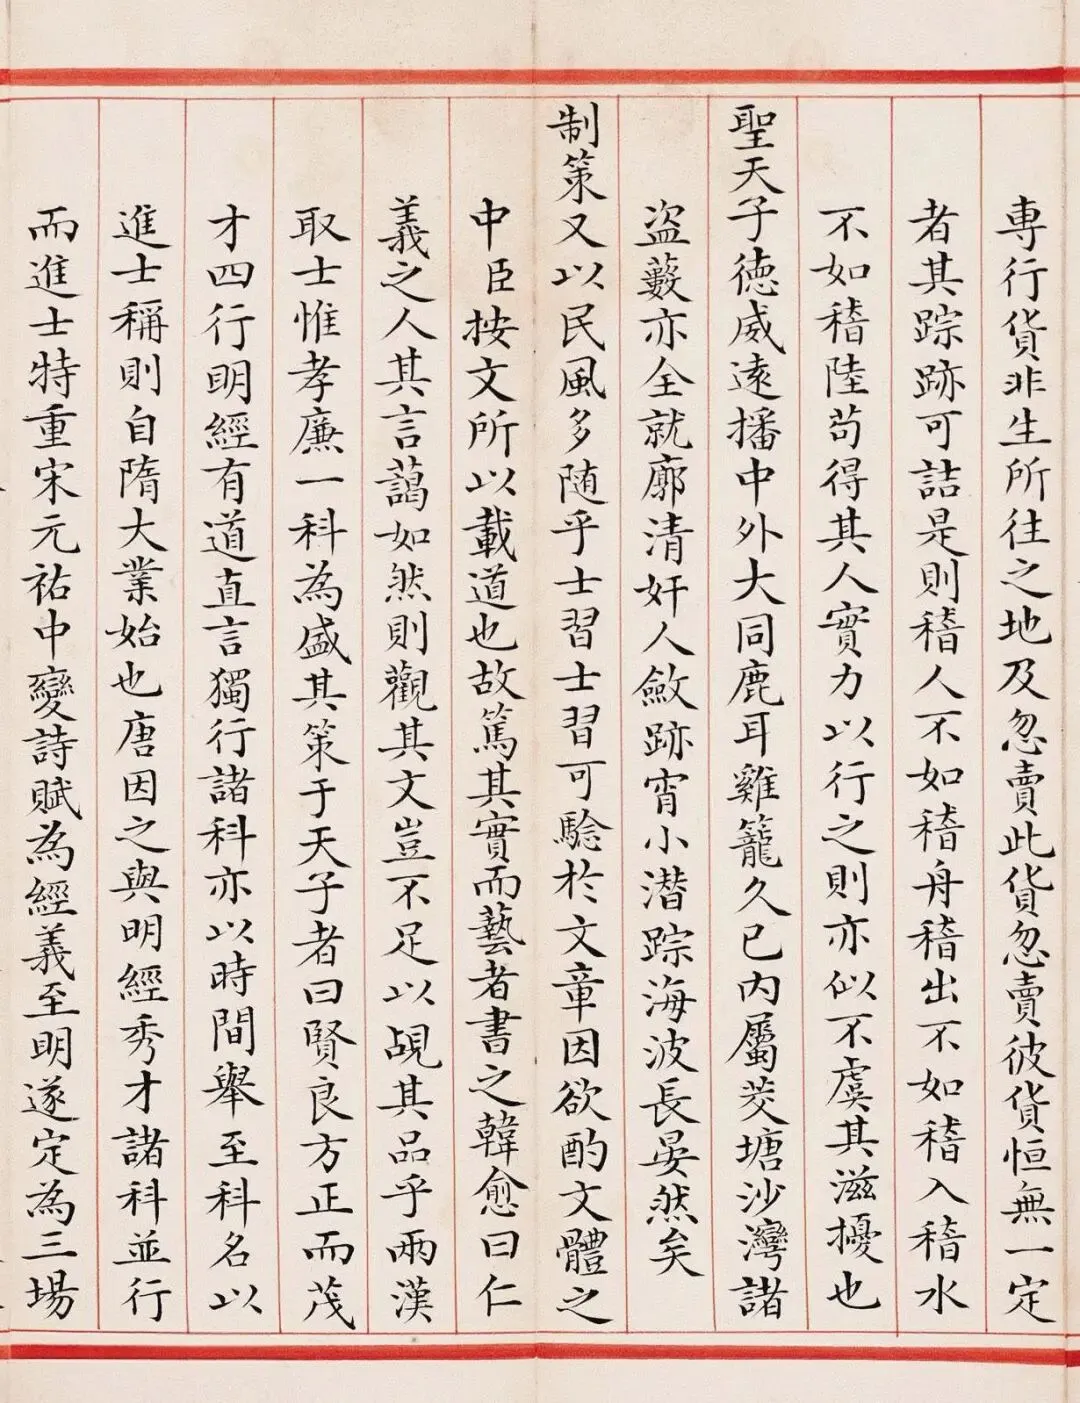 専行貨非生所往之地及忽賣此貨忽賣彼貨恒無一定
者其踪跡可詰是則稽人不如稽舟稽出不如稽入稽水
不如稽陸苟得其人實力以行之則亦似不虞其滋擾也
聖天子德威遠播中外大同鹿耳雞籠久已內屬茭塘沙灣諸
盜藪亦全就廓清奸人斂跡宵小潛踪海波長晏然矣
制策又以民風多随乎士習士習可驗於文章因欲酌文體之
中臣按文所以載道也故篤其實而藝者書之韓愈曰仁
義之人其言藹如然則觀其文豈不足以覘其品乎兩漢
取士惟孝廉一科為盛其策于天子者曰賢良方正而茂
才四行明經有道直言獨行諸科亦以時間舉至科名以
進士稱則自隋大業始也唐因之與明經秀才諸科並行
而進士特重宋元祐中變詩賦為經義至明遂定為三場